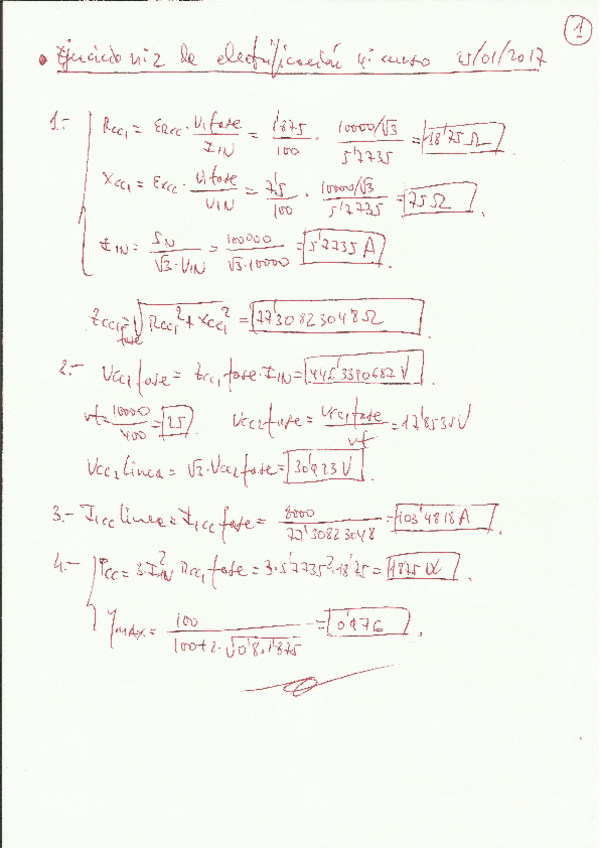 1
• Ejercicio nº 2 de electrificación 4º curso 25/01/2017
1.- Rcc1 = εRcc · U1fase / I1N = 1'875/100 · (10000/√3) / 5'7735 = 18'75 Ω
Xcc1 = εXcc · U1fase / U1N = 7'5/100 · (10000/√3) / 5'7735 = 75 Ω.
I1N = SN / (√3 · U1N) = 100000 / (√3 · 10000) = 5'7735 A.
Zcc1 fase = √(Rcc1² + Xcc1²) = 77'30823048 Ω.
2.- Ucc1 fase = Zcc1 fase · I1N = 446'3390687 V.
rt = 10000/400 = 25. Ucc2 fase = Ucc1 fase / rt = 17'8535 V
Ucc2 línea = √3 · Ucc2 fase = 30'923 V.
3.- I1cc línea = I1cc fase = 8000 / 77'30823048 = 103'4818 A.
4.- Pcc = 3 · I1N² · Rcc1 fase = 3 · 5'7735² · 18'75 = 1875 W.
ηMAX = 100 / (100 + 2 · √(0'8 · 1'875)) = 0'976.